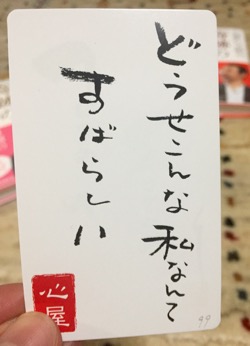 どうせこんな私なんて
すばらしい
心屋
99